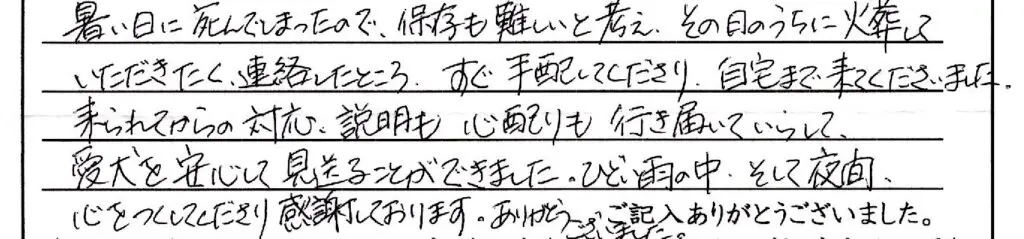 暑い日に死んでしまったので、保存も難しいと考え、その日のうちに火葬して
いただきたく、連絡したところ、すぐ手配してくださり、自宅まで来てくださいました。
来られてからの対応、説明も心配りも行き届いていらして、
愛犬を安心して見送ることができました。ひどい雨の中、そして夜間、
心をつくしてくださり感謝しております。ありがとう
ございました。
ご記入ありがとうございました。